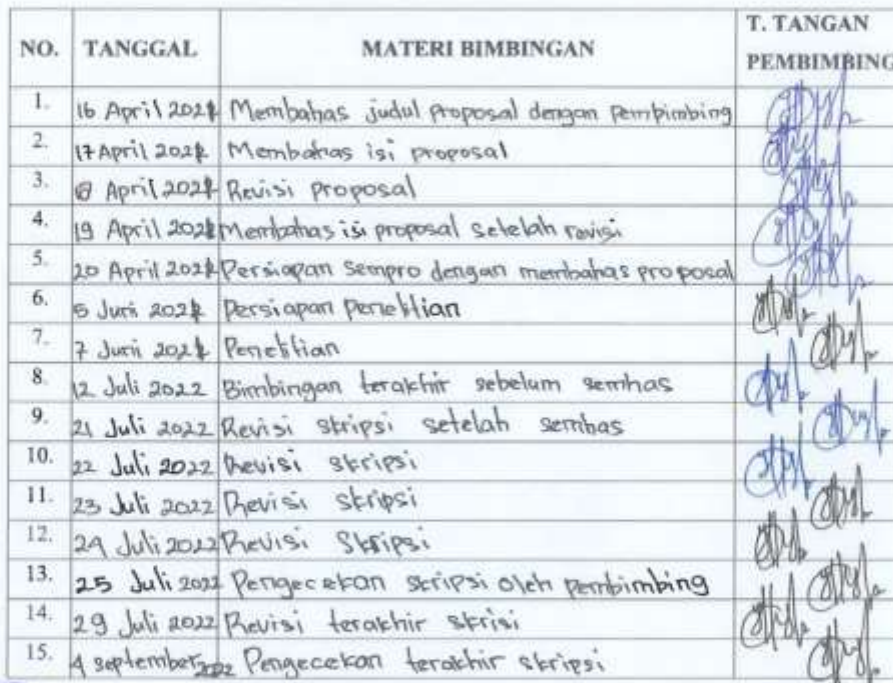 NO. TANGGAL MATERI BIMBINGAN T. TANGAN PEMBIMBING
1. 16 April 2022 Membahas judul proposal dengan pembimbing
2. 17 April 2022 Membahas isi proposal
3. 18 April 2022 Revisi proposal
4. 19 April 2022 Membahas isi proposal setelah revisi
5. 20 April 2022 Persiapan sempro dengan membahas proposal
6. 5 Juni 2022 Persiapan penelitian
7. 7 Juni 2022 Penelitian
8. 12 Juli 2022 Bimbingan terakhir sebelum semhas
9. 21 Juli 2022 Revisi skripsi setelah semhas
10. 22 Juli 2022 Revisi skripsi
11. 23 Juli 2022 Revisi skripsi
12. 24 Juli 2022 Revisi Skripsi
13. 25 Juli 2022 Pengecekan skripsi oleh pembimbing
14. 29 Juli 2022 Revisi terakhir skrisi
15. 4 september 2022 Pengecekan terakhir skripsi